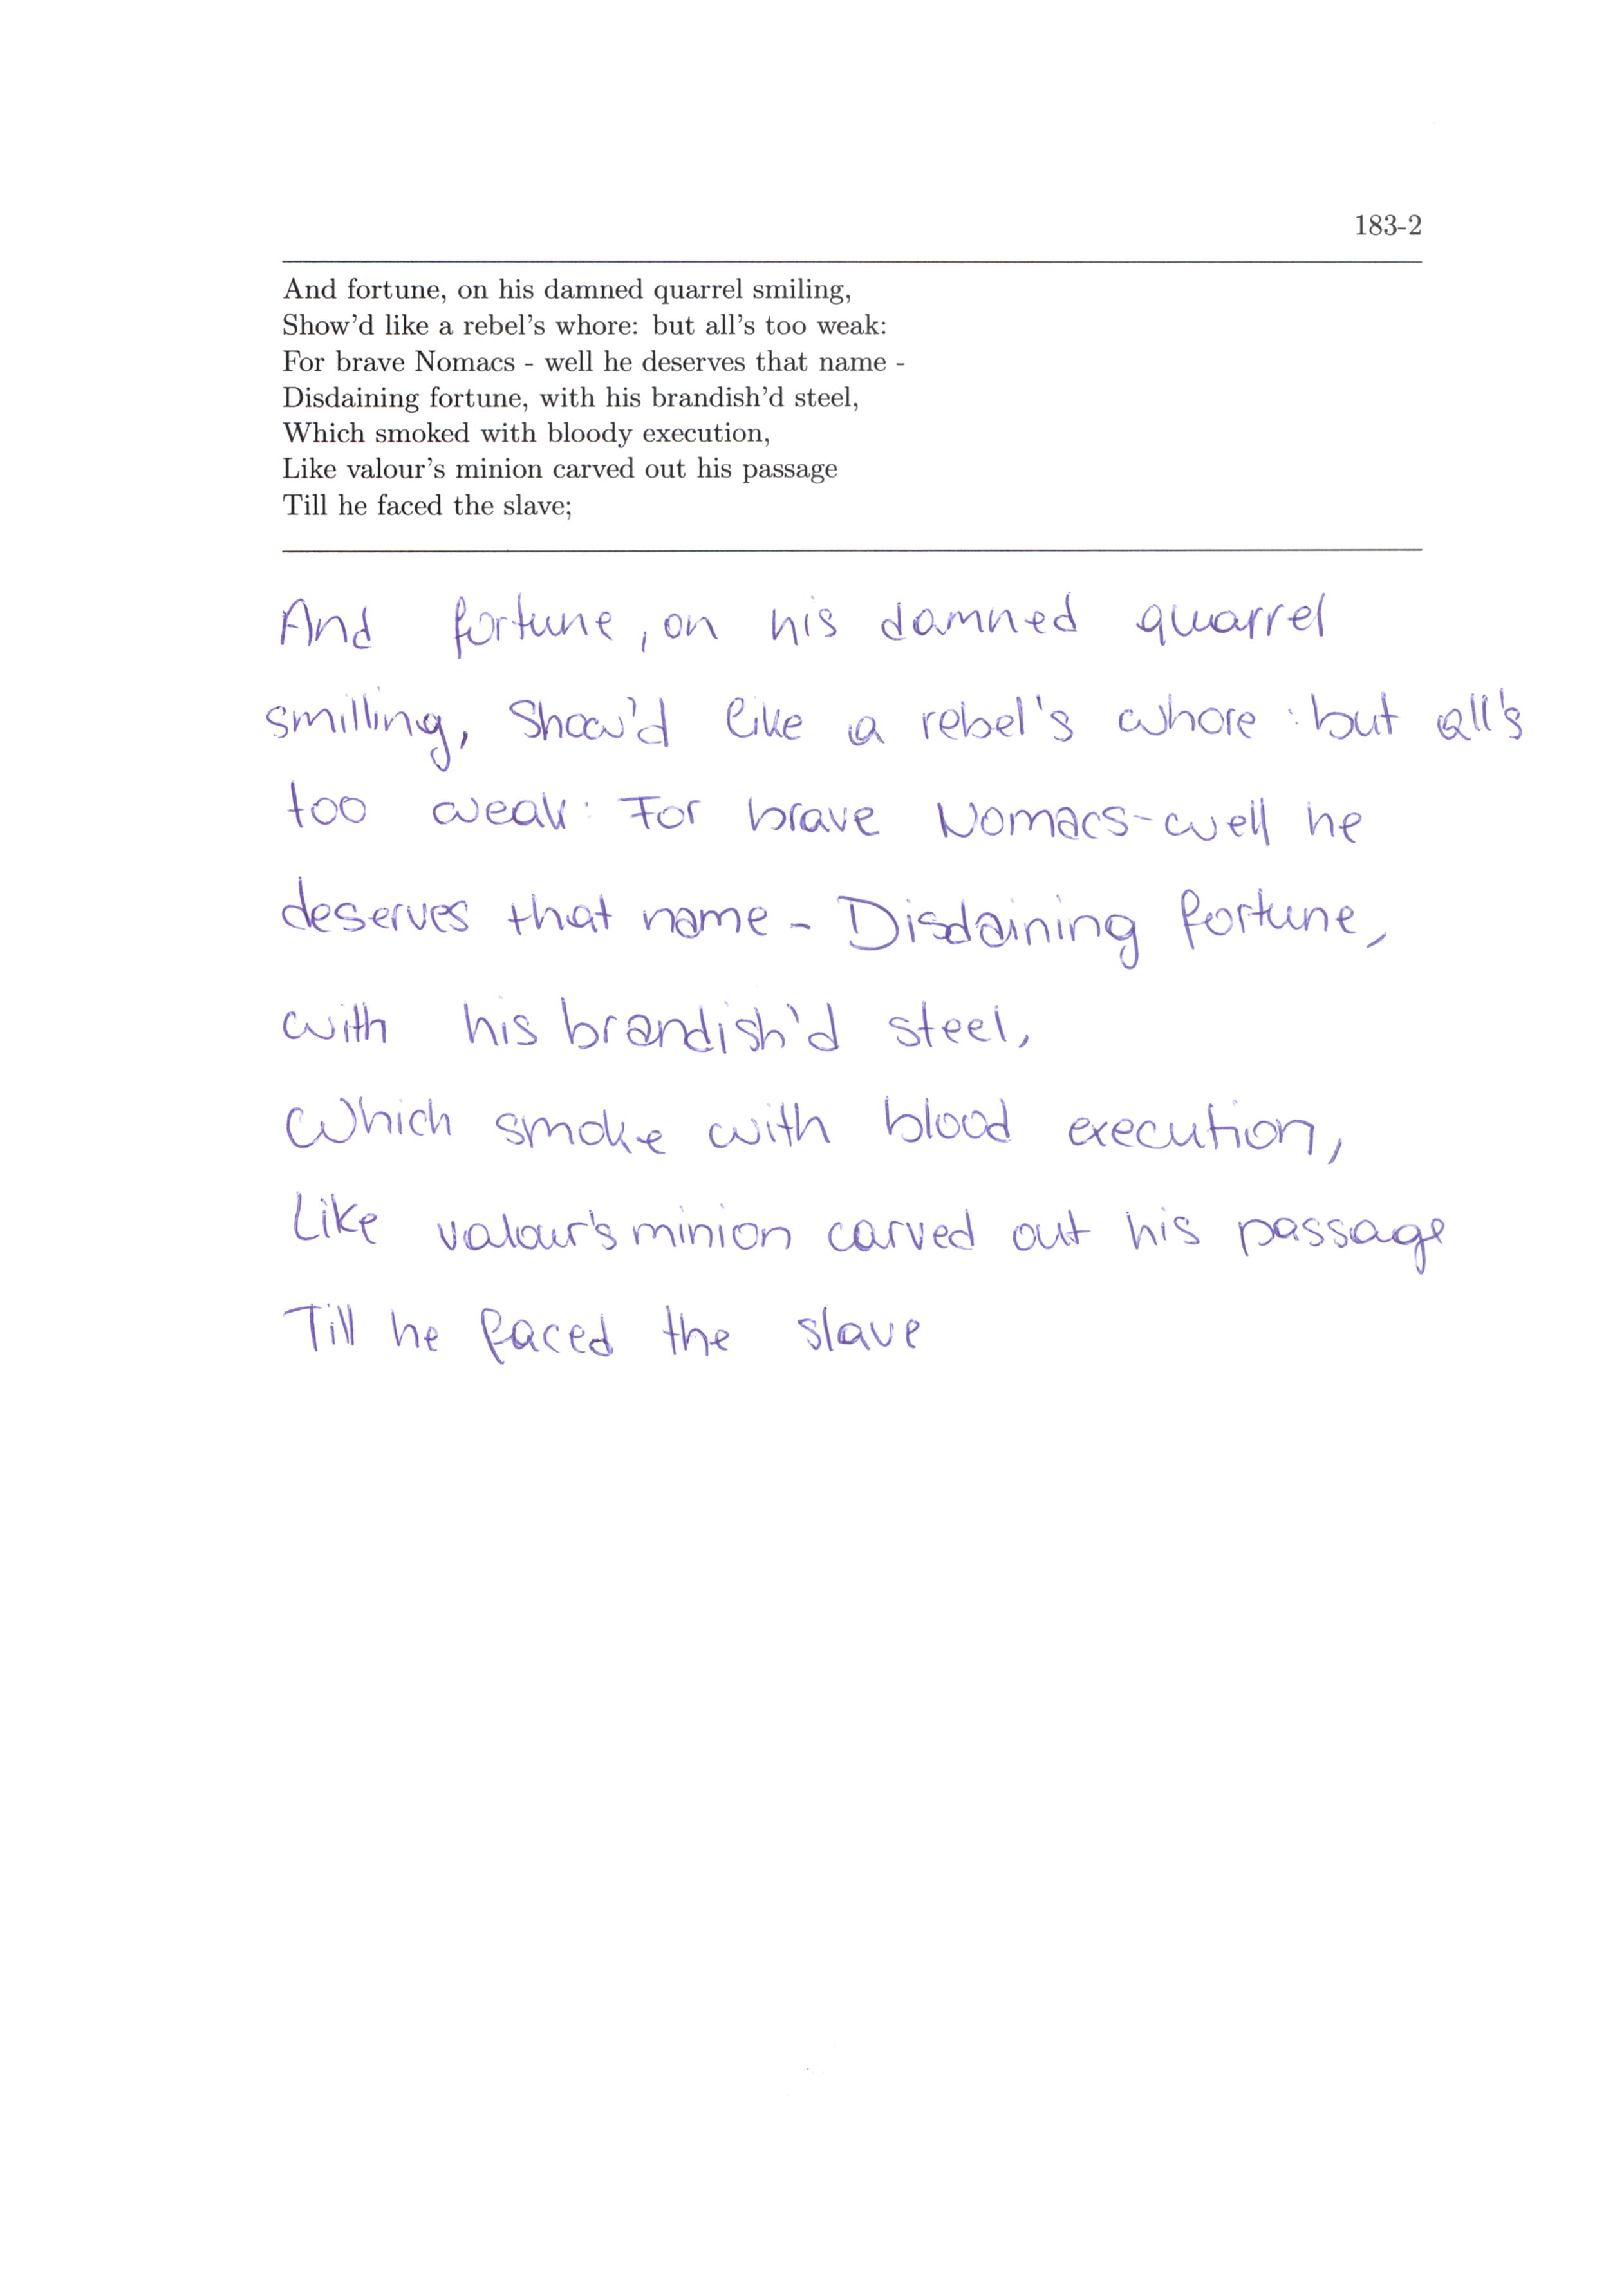 183-2
And fortune, on his damned quarrel smiling,
Show'd like a rebel's whore: but all's too weak:
For brave Nomacs - well he deserves that name -
Disdaining fortune, with his brandish'd steel,
Which smoked with bloody execution,
Like valour's minion carved out his passage
Till he faced the slave;
And fortune, on his damned quarrel
smilling, Show'd like a rebel's whore : but all's
too weak: For brave Nomacs-well he
deserves that name - Disdaining fortune,
with his brandish'd steel,
Which smoke with blood execution,
Like valour's minion carved out his passage
Till he faced the slave